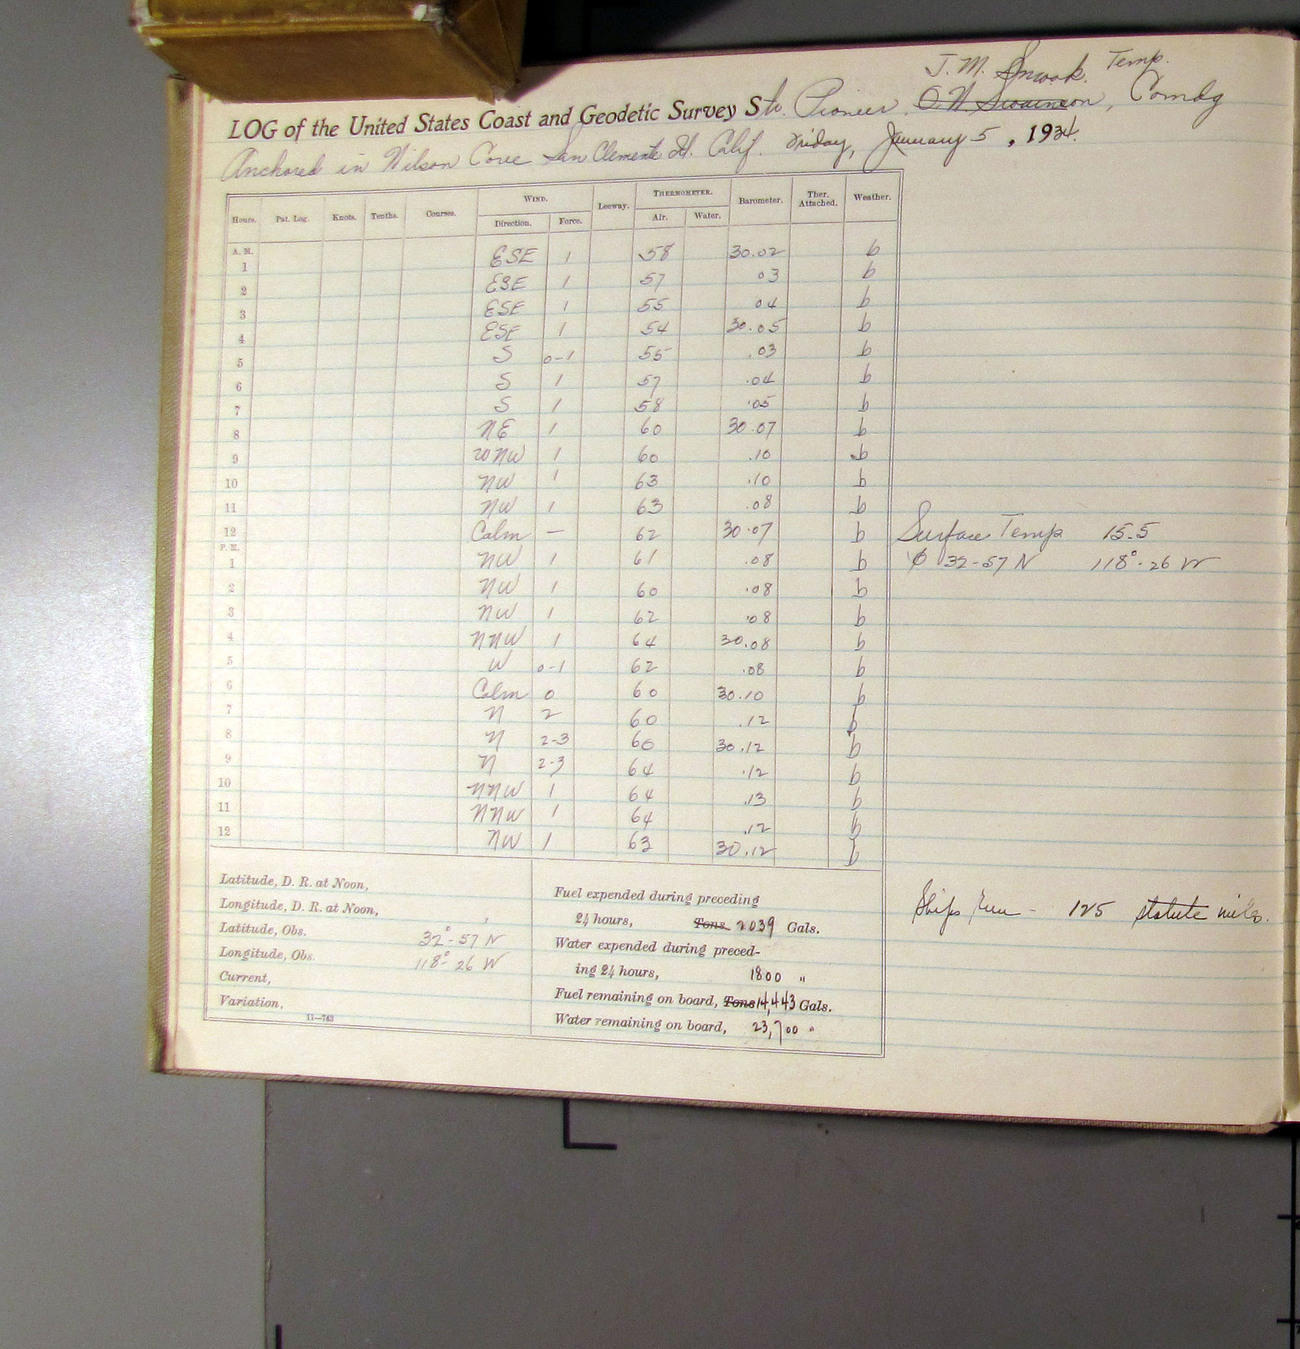 J. M. Smook Temp.
LOG of the United States Coast and Geodetic Survey Str. Pioneer O. W. Swainson, Comdg
Anchored in Wilson Cove San Clemente Id. Calif. Friday, January 5, 1934.
Hours. Pat. Log. Knots. Tenths. Courses. WIND. Direction. Force. Leeway. THERMOMETER. Air. Water. Barometer. Ther. Attached. Weather.
A. M.
1 ESE 1 58 30.02 b
2 ESE 1 57 03 b
3 ESE 1 55 04 b
4 ESE 1 54 30.05 b
5 S 0-1 55 .03 b
6 S 1 57 .04 b
7 S 1 58 .05 b
8 NE 1 60 30.07 b
9 WNW 1 60 .10 b
10 NW 1 63 .10 b
11 NW 1 63 .08 b
12 Calm — 62 30.07 b Surface Temp 15.5
P. M.
1 NW 1 61 .08 b φ 32-57 N 118°-26 W
2 NW 1 60 .08 b
3 NW 1 62 .08 b
4 NNW 1 64 30.08 b
5 W 0-1 62 .08 b
6 Calm 0 60 30.10 b
7 N 2 60 .12 b
8 N 2-3 60 30.12 b
9 N 2-3 64 .12 b
10 NNW 1 64 .13 b
11 NNW 1 64 .12 b
12 NW 1 63 30.12 b
Latitude, D. R. at Noon,
Longitude, D. R. at Noon,
Latitude, Obs. 32°-57 N
Longitude, Obs. 118°-26 W
Current,
Variation,
11—743
Fuel expended during preceding
24 hours, Tons 2039 Gals.
Water expended during preced-
ing 24 hours, 1800 "
Fuel remaining on board, Tons 14,443 Gals.
Water remaining on board, 23,700 "
Ships Run - 125 statute miles.